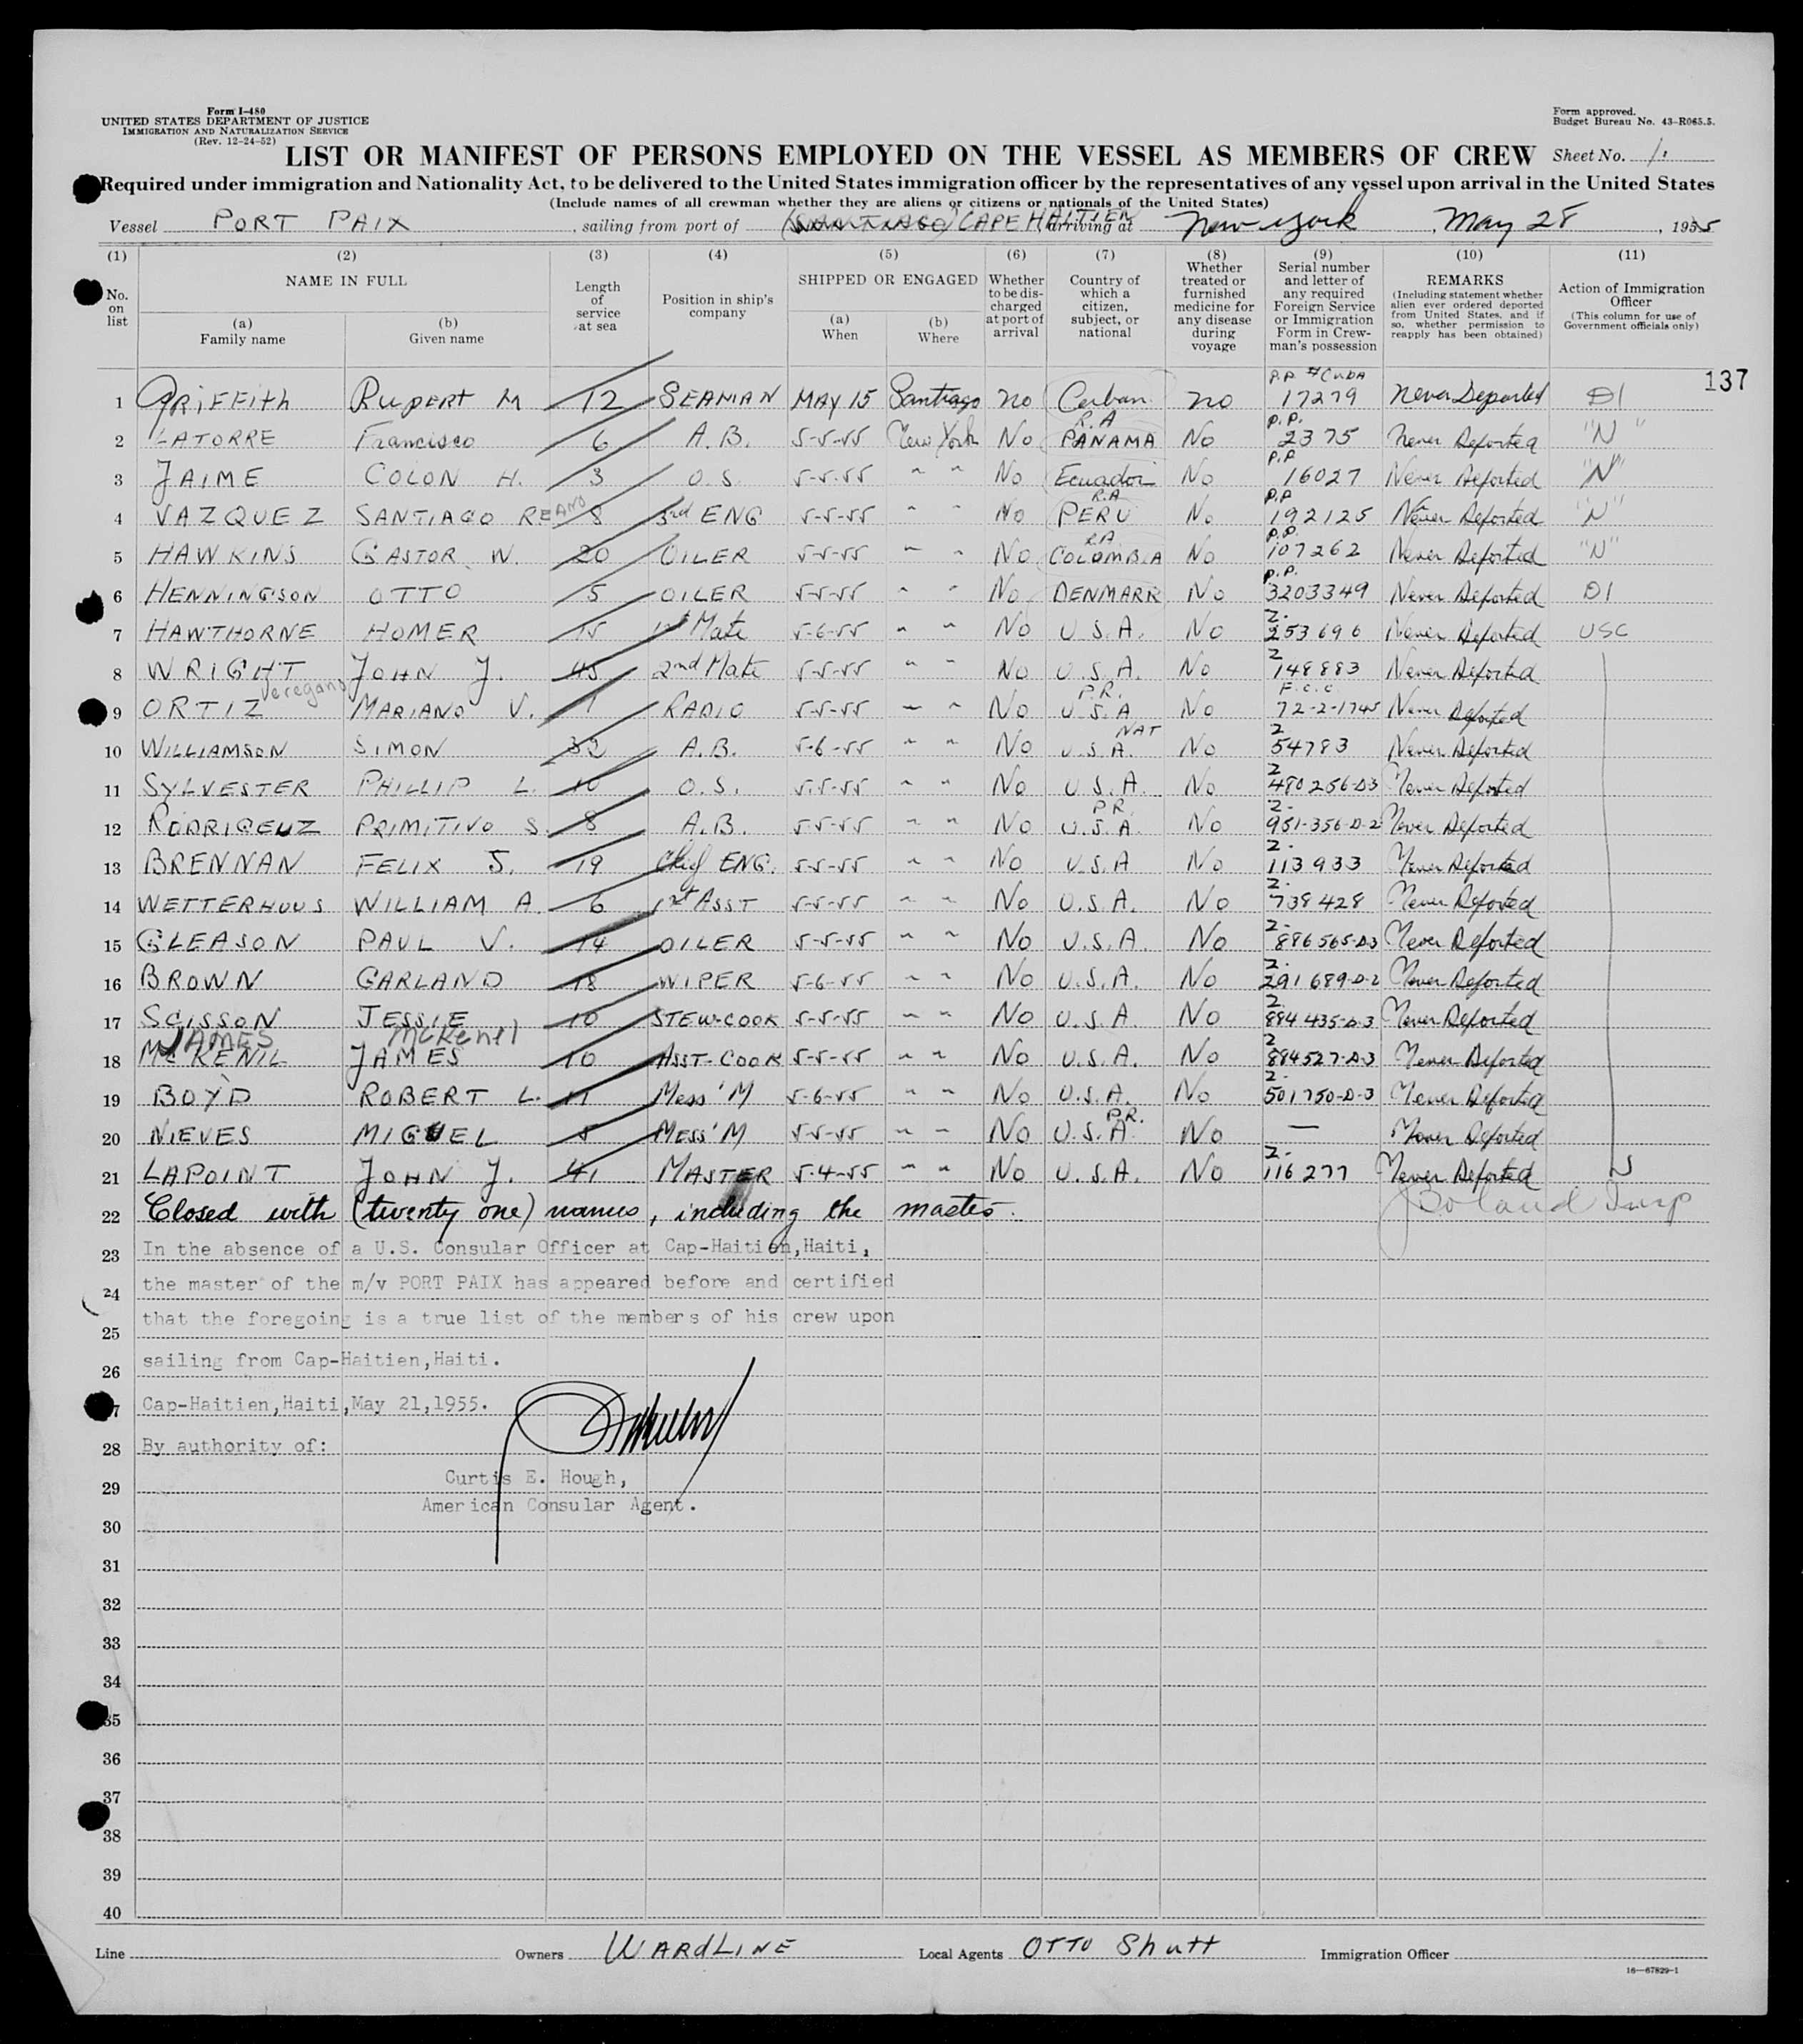 Form I-480
UNITED STATES DEPARTMENT OF JUSTICE
IMMIGRATION AND NATURALIZATION SERVICE
(Rev. 12-24-52)
Form approved.
Budget Bureau No. 43-R065.5.
LIST OR MANIFEST OF PERSONS EMPLOYED ON THE VESSEL AS MEMBERS OF CREW Sheet No. 1
Required under immigration and Nationality Act, to be delivered to the United States immigration officer by the representatives of any vessel upon arrival in the United States
(Include names of all crewman whether they are aliens or citizens or nationals of the United States)
Vessel PORT PAIX, sailing from port of (SANTIAGO) CAPE HAITIEN arriving at New York, May 28, 1955
(1) (2) (3) (4) (5) (6) (7) (8) (9) (10) (11)
No. on list
NAME IN FULL
(a) Family name
(b) Given name
Length of service at sea
Position in ship's company
SHIPPED OR ENGAGED
(a) When
(b) Where
Whether to be discharged at port of arrival
Country of which a citizen, subject, or national
Whether treated or furnished medicine for any disease during voyage
Serial number and letter of any required Foreign Service or Immigration Form in Crewman's possession
REMARKS
(Including statement whether alien ever ordered deported from United States, and if so, whether permission to reapply has been obtained)
Action of Immigration Officer
(This column for use of Government officials only)
137
1 GRIFFith Rupert M 12 SEAMAN MAY 15 Santiago no Cuban no P.P. # CUBA 17279 Never Deported D1
2 LATORRE Francisco 6 A.B. 5-5-55 New York No R.A PANAMA No P.P. 2375 Never Deported "N"
3 JAIME COLON H. 3 O.S. 5-5-55 " " No Ecuador No P.P 16027 Never Deported "N"
4 VAZQUEZ SANTIAGO REANO 8 3rd ENG 5-5-55 " " No R.A PERU No P.P 192125 Never Deported "N"
5 HAWKINS GASTOR W. 20 OILER 5-5-55 " " No R.A COLOMBIA No P.P. 107262 Never Deported "N"
6 HENNINGSON OTTO 5 OILER 5-5-55 " " No DENMARK No P.P. 3203349 Never Deported D1
7 HAWTHORNE HOMER 15 1st Mate 5-6-55 " " No U.S.A. No Z. 253696 Never Deported USC
8 WRIGHT JOHN J. 45 2nd Mate 5-5-55 " " No U.S.A. No Z 148883 Never Deported
9 ORTIZ MARIANO V. 1 RADIO 5-5-55 " " No P.R. U.S.A No F.C.C. 72-2-1745 Never Deported
10 WILLIAMSON SIMON 32 A.B. 5-6-55 " " No NAT U.S.A. No Z 54783 Never Deported
11 SYLVESTER PHILLIP L. 10 O.S. 5-5-55 " " No U.S.A. No Z 480256-D3 Never Deported
12 RODRIGEUZ PRIMITIVO S. 8 A.B. 5-5-55 " " No P.R. U.S.A. No Z. 951-356-D-2 Never Deported
13 BRENNAN FELIX J. 19 Chief ENG. 5-5-55 " " No U.S.A No Z. 113933 Never Deported
14 WETTERHUUS WILLIAM A. 6 1st ASST 5-5-55 " " No U.S.A. No Z. 738428 Never Deported
15 GLEASON PAUL V. 14 OILER 5-5-55 " " No U.S.A. No Z. 886565-D3 Never Deported
16 BROWN GARLAND 18 WIPER 5-6-55 " " No U.S.A. No Z. 291689-D-2 Never Deported
17 SCISSON JESSIE 10 STEW-COOK 5-5-55 " " No U.S.A No Z. 884435-D-3 Never Deported
JAMES McKenil
18 McKENIL JAMES 10 ASST-COOK 5-5-55 " " No U.S.A. No Z 884527-D-3 Never Deported
19 BOYD ROBERT L. 11 Mess'M 5-6-55 " " No U.S.A. No Z. 501750-D-3 Never Deported
20 NIEVES MIGUEL 5 MESS'M 5-5-55 " " No P.R. U.S.A. No — Never Deported
21 LAPOINT JOHN J. 41 MASTER 5-4-55 " " No U.S.A. No Z. 116277 Never Deported
22 Closed with (twenty one) names, including the master. Boland Insp
23 In the absence of a U.S. Consular Officer at Cap-Haitien,Haiti,
24 the master of the m/v PORT PAIX has appeared before and certified
25 that the foregoing is a true list of the members of his crew upon
26 sailing from Cap-Haitien,Haiti.
27 Cap-Haitien,Haiti,May 21,1955.
28 By authority of:
29 Curtis E. Hough,
American Consular Agent.
30
31
32
33
34
35
36
37
38
39
40
Line Owners WARDLINE Local Agents OTTO Shutt Immigration Officer
16—67829-1